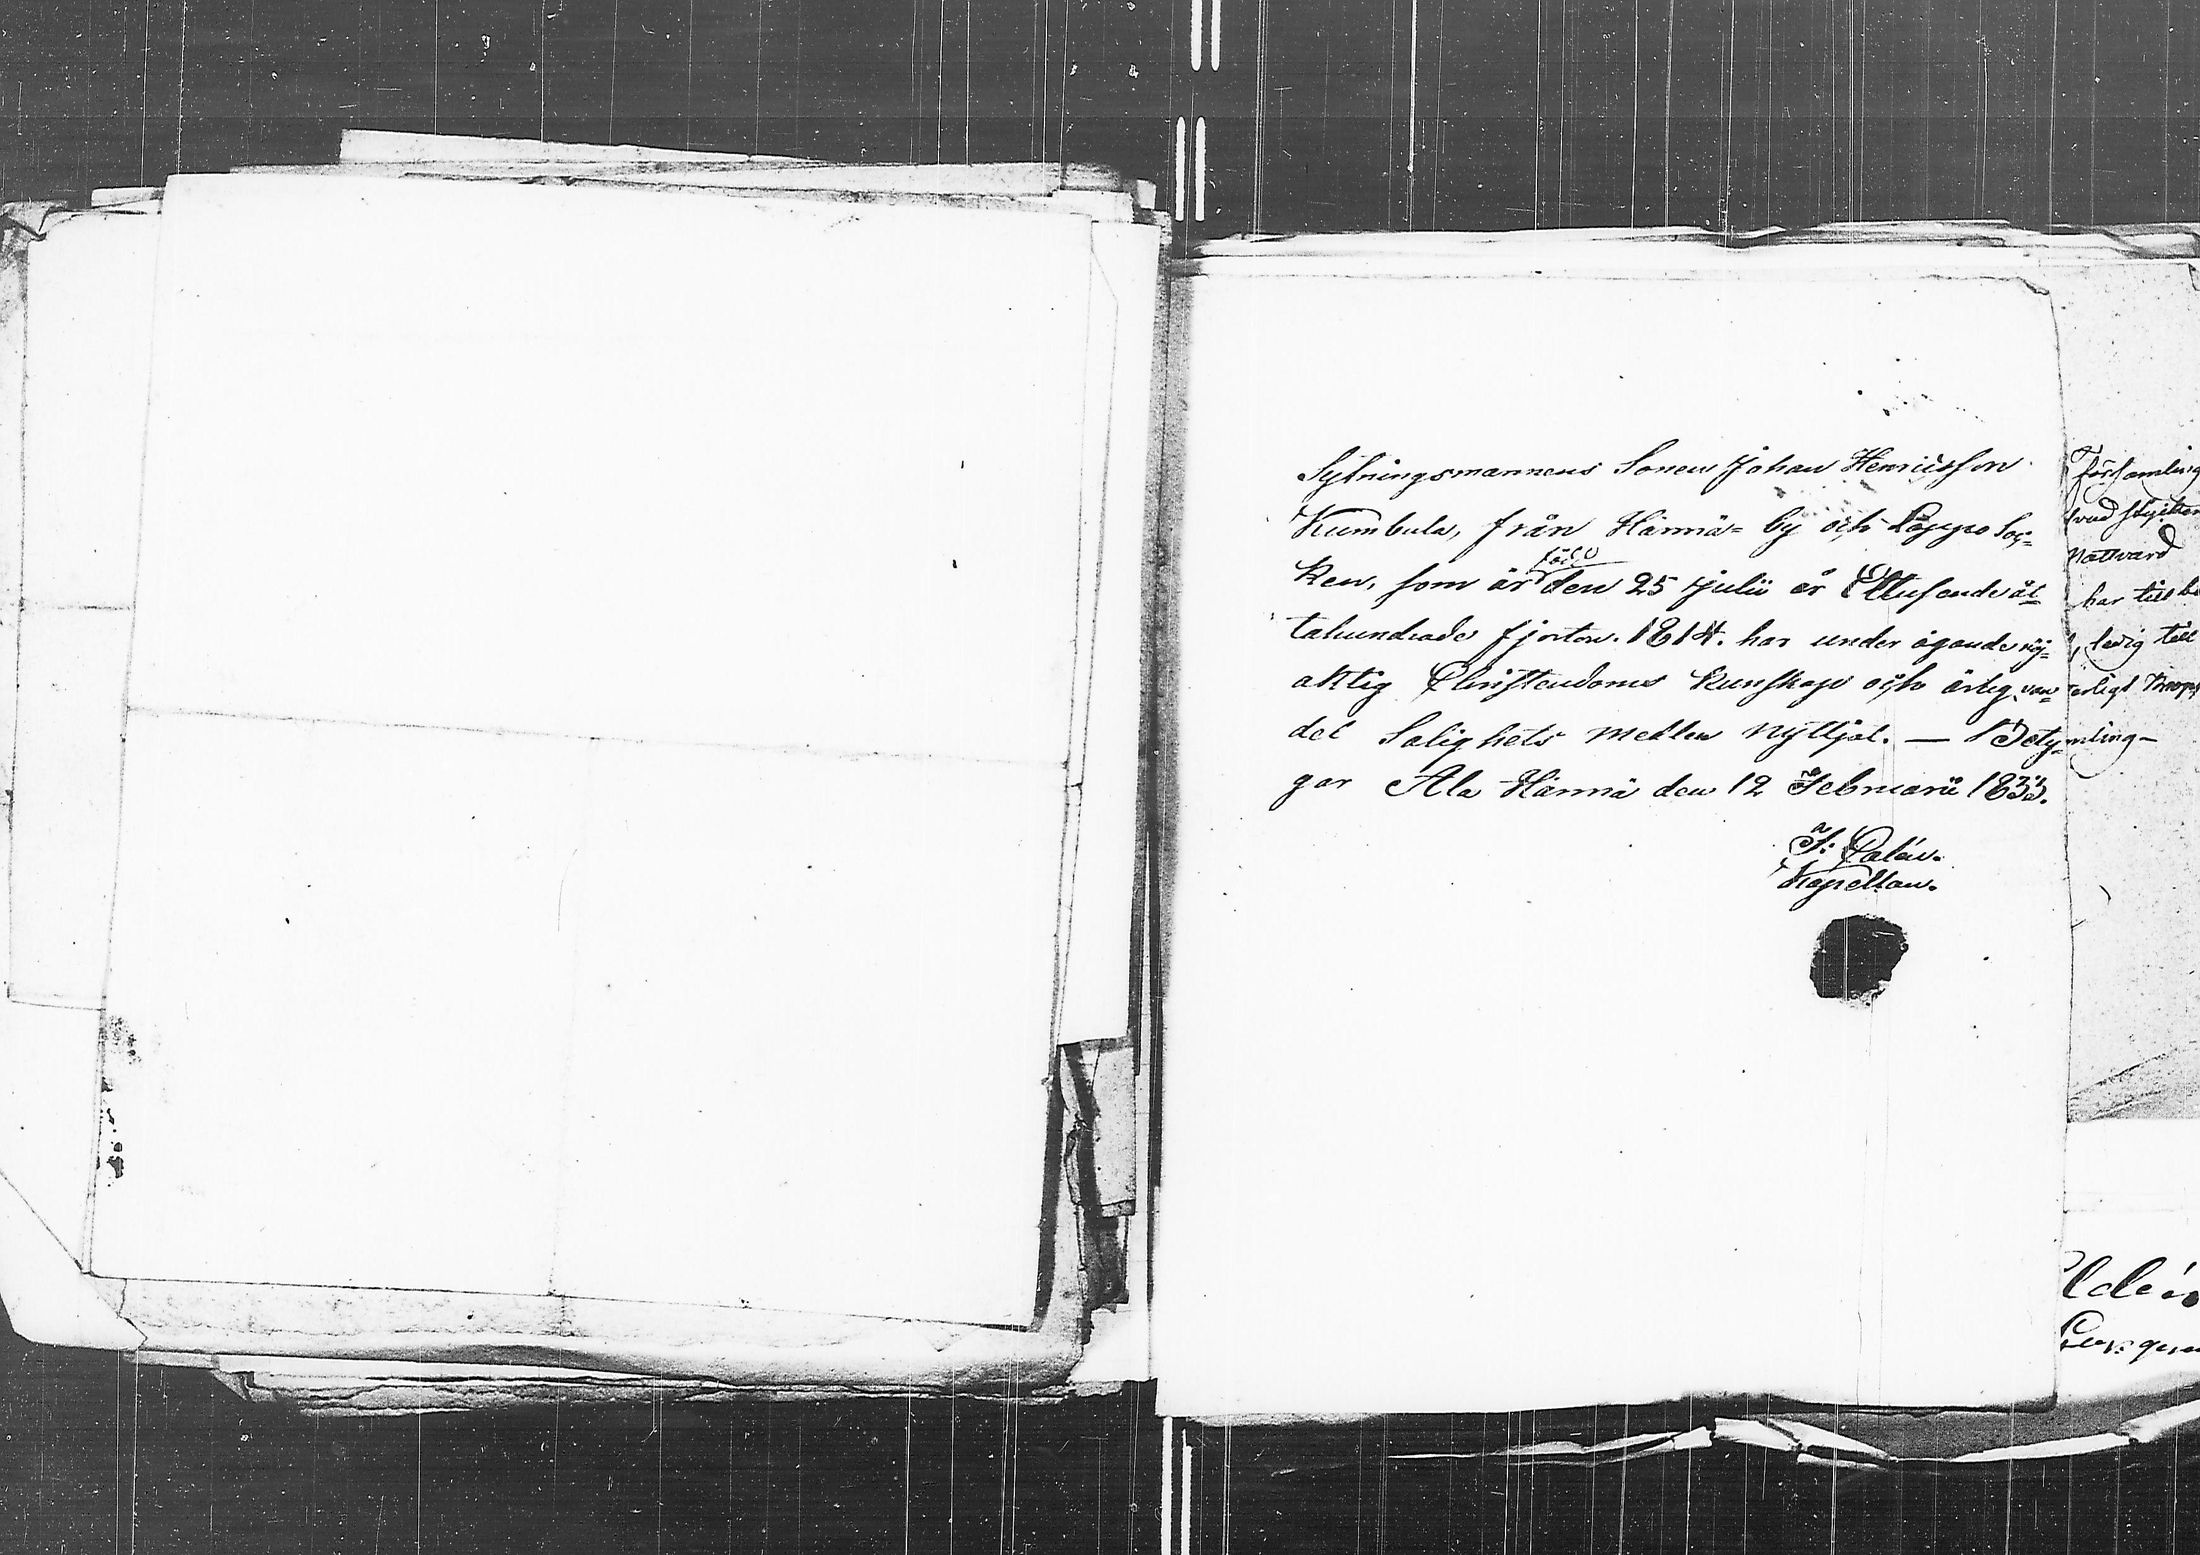 Sytningsmannens Sonen Johan Henricsson
Kumbula, från Härmä= by och Lappo Soc=
ken, som är född den 25 Julii år Ettusende åt=
tahundrade fjorton. 1814. har under ägande rig=
aktig Christendoms kunskap och ärlig van=
del Salighets medlen nyttjat. — Bety=
gar Ala Härmä den 12 Februarii 1833.
J: Calén.
Kapellan.
församling
Nattvard
har till
, ledig till
mling-